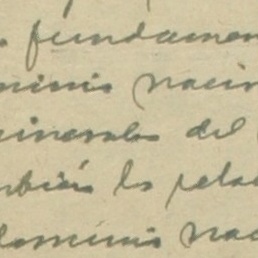 . fundamen
minio nacion
minerales del
mbién la rela
dominio nac